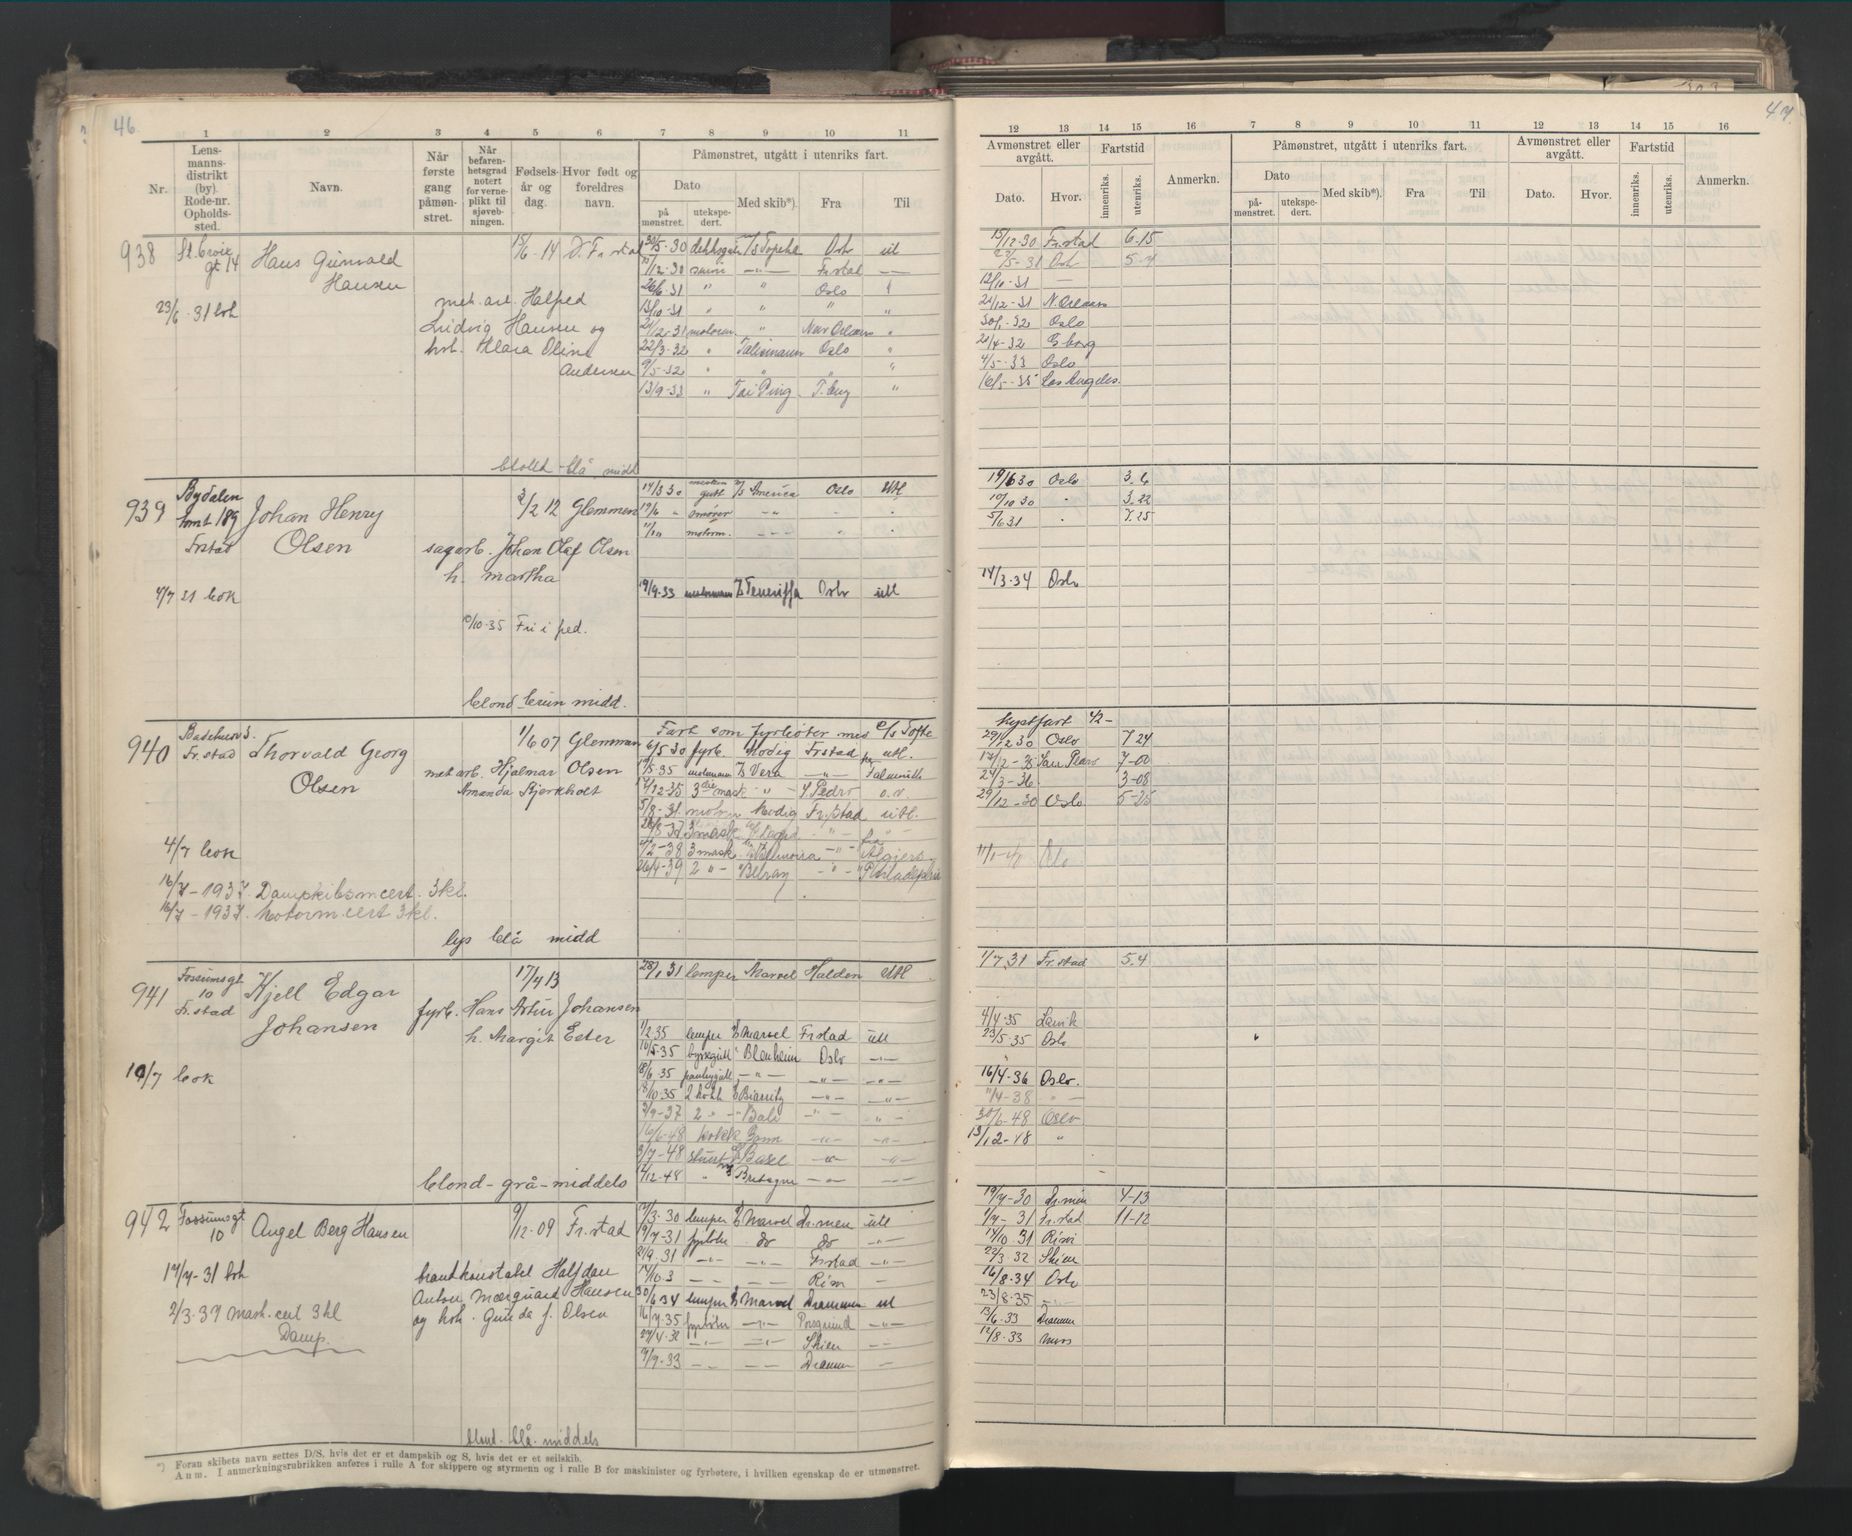 46.
47
1 2 3 4 5 6 7 8 9 10 11
Nr.
Lensmannsdistrikt (by). Rode-nr. Opholdssted.
Navn.
Når første gang påmønstret.
Når befarenhetsgrad notert for verneplikt til sjøvebningen.
Fødselsår og dag.
Hvor født og foreldres navn.
Påmønstret, utgått i utenriks fart.
Dato
på mønstret.
utekspedert.
Med skib*).
Fra
Til
12 13 14 15 16 7 8 9 10 11 12 13 14 15 16
Avmønstret eller avgått.
Fartstid
Dato.
Hvor.
innenriks.
utenriks.
Anmerkn.
Påmønstret, utgått i utenriks fart.
Dato
påmønstret.
utekspedert.
Med skib*).
Fra
Til
Avmønstret eller avgått.
Fartstid
Dato.
Hvor.
innenriks.
utenriks.
Anmerkn.
938 St. Croix gt 14 Hans Gunvald Hansen 15/6-14 V. Fr.stad
23/6-31 bok
met. arb. Halfred
Ludvig Hansen og
hst. Klara Oline
Andersen
30/5-30 dekksgutt M/S Topeka Oslo utl
/12-30 samme —"— Fr.stad —
26/6-31 " " Oslo
13/10-31 " " "
21/12-31 motorm. " New Orleans "
22/3-32 " Talisman Oslo "
9/5-32 " " " "
13/9-33 " Tai Ping T.berg "
15/12-30 Fr.stad 6-15
/5-31 Osl 5-7
12/10-31 —
21/12-31 N. Orleans
30/1-32 Oslo
20/4-32 G.borg
4/5-33 Oslo
16/5-35 Los Angeles.
blå midd
939 Bydalen tomt 189 Fr.stad Johan Henry Olsen 3/2 12 Glemmen
sagarb. Johan Olaf Olsen
h. Martha
4/7 31 bok
14/3 30 M/S America Oslo Utl.
17/6 " smører —"— " "
11/10 motorm. — " "
19/9-33 motormann M/S Teneriffa Oslo utl
19/6 30 Oslo 3.6
10/10 30 " 3.22
5/6 31 " 7.25
14/3-34 Oslo
10/10-35 Fri i fred.
blond brun midd.
940 Badehusv. 5. Fr.stad Thorvald Georg Olsen 1/6 07 Glemmen
met arb. Hjalmar Olsen
Amanda Bjerkholt
4/7 bok
16/7-1937. Dampskibsmcert. 3kl.
16/7-1937. Motorm.cert 3kl.
lys blå midd
Fart som fyrbøter med D/S Tofte
6/5 30 fyrb. Modig Frstad utl.
19/5-35 motormann M/S Vera —"— Falmouth
17/12-35 3die mask " S. Pedro o.v
5/8-31 motorm Modig Fr.stad utl.
3 mask
7/2-38 3 mask. —"— Algiers
26/4-39 2 "— "Belray —"— "Philadelphia
kystfart 42-
29/12 30 Oslo 7 24
17/12-35 San Pedro 7-00
24/3-36 3-08
29/12-30 Oslo 5-25
Oslo
941 Fossumsgt 10 Fr.stad Kjell Edgar Johansen 17/4 13
fyrb. Hans Artur Johansen
h. Margit Ester
10/7 bok
28/1 31 lemper Marvel Halden Utl
1/2 35 lemper D/S Marvel Fr.stad utl
10/5-35 byssegutt " Blenheim Oslo —"—
8/6 35 pantrygutt —"— —"— —"—
8/10 35 2 kokk D/S Biarritz —"— —"—
3/9-37 2 "— "Bali —"— "—
16/6-48 kokk Bonn —"— —"—
3/7-48 stuert D/S Basel —"— —"—
1/12-48 " M/S Bretagne —"— —"—
1/7 31 Fr.stad 5.4
4/4-35 Larvik
23/5-35 Oslo
16/4-36 Oslo.
11/4-38 "—
30/6-48 Oslo
13/12-48 "
blond-grå-middels
942 Fossumsgt 10 Angel Berg Hansen 9/12-09 Fr.stad
17/7-31 bok
2/3-37 Mask.cert 3kl
Damp.
brandkonstabel Halfdan
Anton Mærguard Hansen
og hst. Gunda f. Olsen
/3-30 lemper D/S Marvel Dr.men utl
19/7-31 fyrbøter do do —"—
21/9-31 —"— —"— Frstad —"—
14/10 3 — — Risør —
30/6 34 lemper D/S Marvel Drammen utl
16/7-35 fyrbøter —"— Porsgrund —"—
27/4-32 —"— —"— Skien ——
9/9-33 —— —— Drammen —
19/7-30 Dr.men 4-13
1/7-31 Fr.stad 11-12
14/10 31 Risør
22/3-32 Skien
16/8-34 Oslo
23/8-35 —"—
13/6-33 Drammen
12/8-33 Moss
blond. blå. middels
*) Foran skibets navn settes D/S, hvis det er et dampskib og S, hvis det er et seilskib.
Anm. I anmerkningsrubrikken anføres i rulle A for skippere og styrmenn og i rulle B for maskinister og fyrbøtere, i hvilken egenskap de er utmønstret.